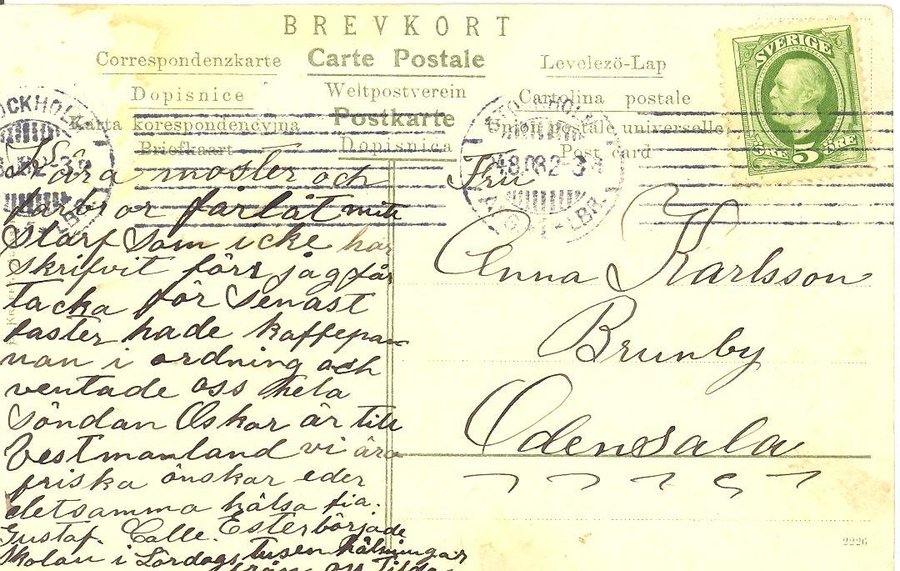 BREVKORT
Correspondenzkarte Carte Postale Levelező-Lap
Dopisnice Weltpostverein Cartolina postale
Karta korespondencyjna Postkarte Union postale universelle
Briefkaart Dopisnica Post card
SVERIGE
5 ÖRE
STOCKHOLM
4.8.08 2-3
Kära moster och
farbror förlåt mitt
slarf som icke har
skrifvit förr jag får
tacka för senast
faster hade kaffepa-
nan i ordning och
ventade oss hela
söndan Oskar är till
Vestmanland vi ära
friska önskar eder
detsamma hälsa fia.
Gustaf. Calle. Ester började
skolan i Lördags tusen hälsningar
från
Fru
Anna Karlsson
Brunby
Odensala
2226